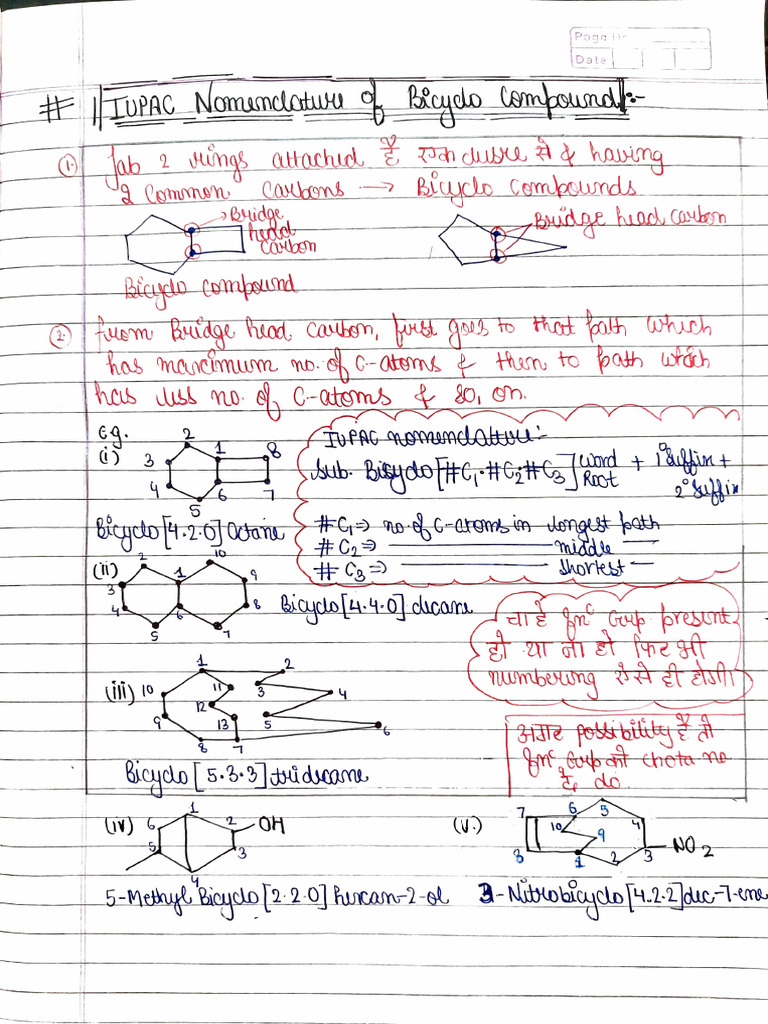 Page No.
Date
# IUPAC Nomenclature of Bicyclo Compound :-
① Jab 2 rings attached हैं एक दुसरे से & having
2 common carbons → Bicyclo compounds
Bridge
head
carbon
Bridge head carbon
Bicyclo compound
② from Bridge head carbon, first goes to that path which
has maximum no. of C-atoms & then to path which
has less no. of C-atoms & so, on.
eg.
(i)
2
1
8
3
4
6
7
5
Bicyclo [4.2.0] Octane
IUPAC nomenclature:-
Sub. Bicyclo [#C1.#C2#C3] Word Root + 1° Suffix +
2° Suffix
#C1 ⇒ no. of C-atoms in longest path
#C2 ⇒ ——— middle ———
#C3 ⇒ ——— shortest ———
(ii)
2
10
1
9
3
4
6
8
5
7
Bicyclo [4.4.0] decane
चाहे fnc Grup present
हो या ना हो फिर भी
numbering ऐसे ही होगी।
(iii)
1
2
10
11
3
4
12
9
13
5
6
8
7
Bicyclo [5.3.3] tridecane
अगर possibility है तो
fnc Grup को chota no
दे do.
(iv)
1
6
2
OH
5
3
4
5-Methyl Bicyclo [2.2.0] hexan-2-ol
(v.)
7
6
5
10
9
4
8
1
2
3
NO2
3-Nitrobicyclo [4.2.2] dec-7-ene